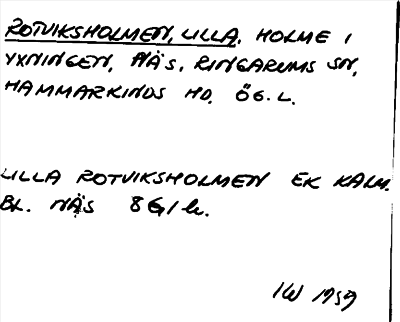 ROTVIKSHOLMEN, LILLA, HOLME I
YXNINGEN, NÄS, RINGARUMS SN,
HAMMARKINDS HD, ÖG. L.
LILLA ROTVIKSHOLMEN EK KALM.
BL. NÄS 8G1k.
IW 1959